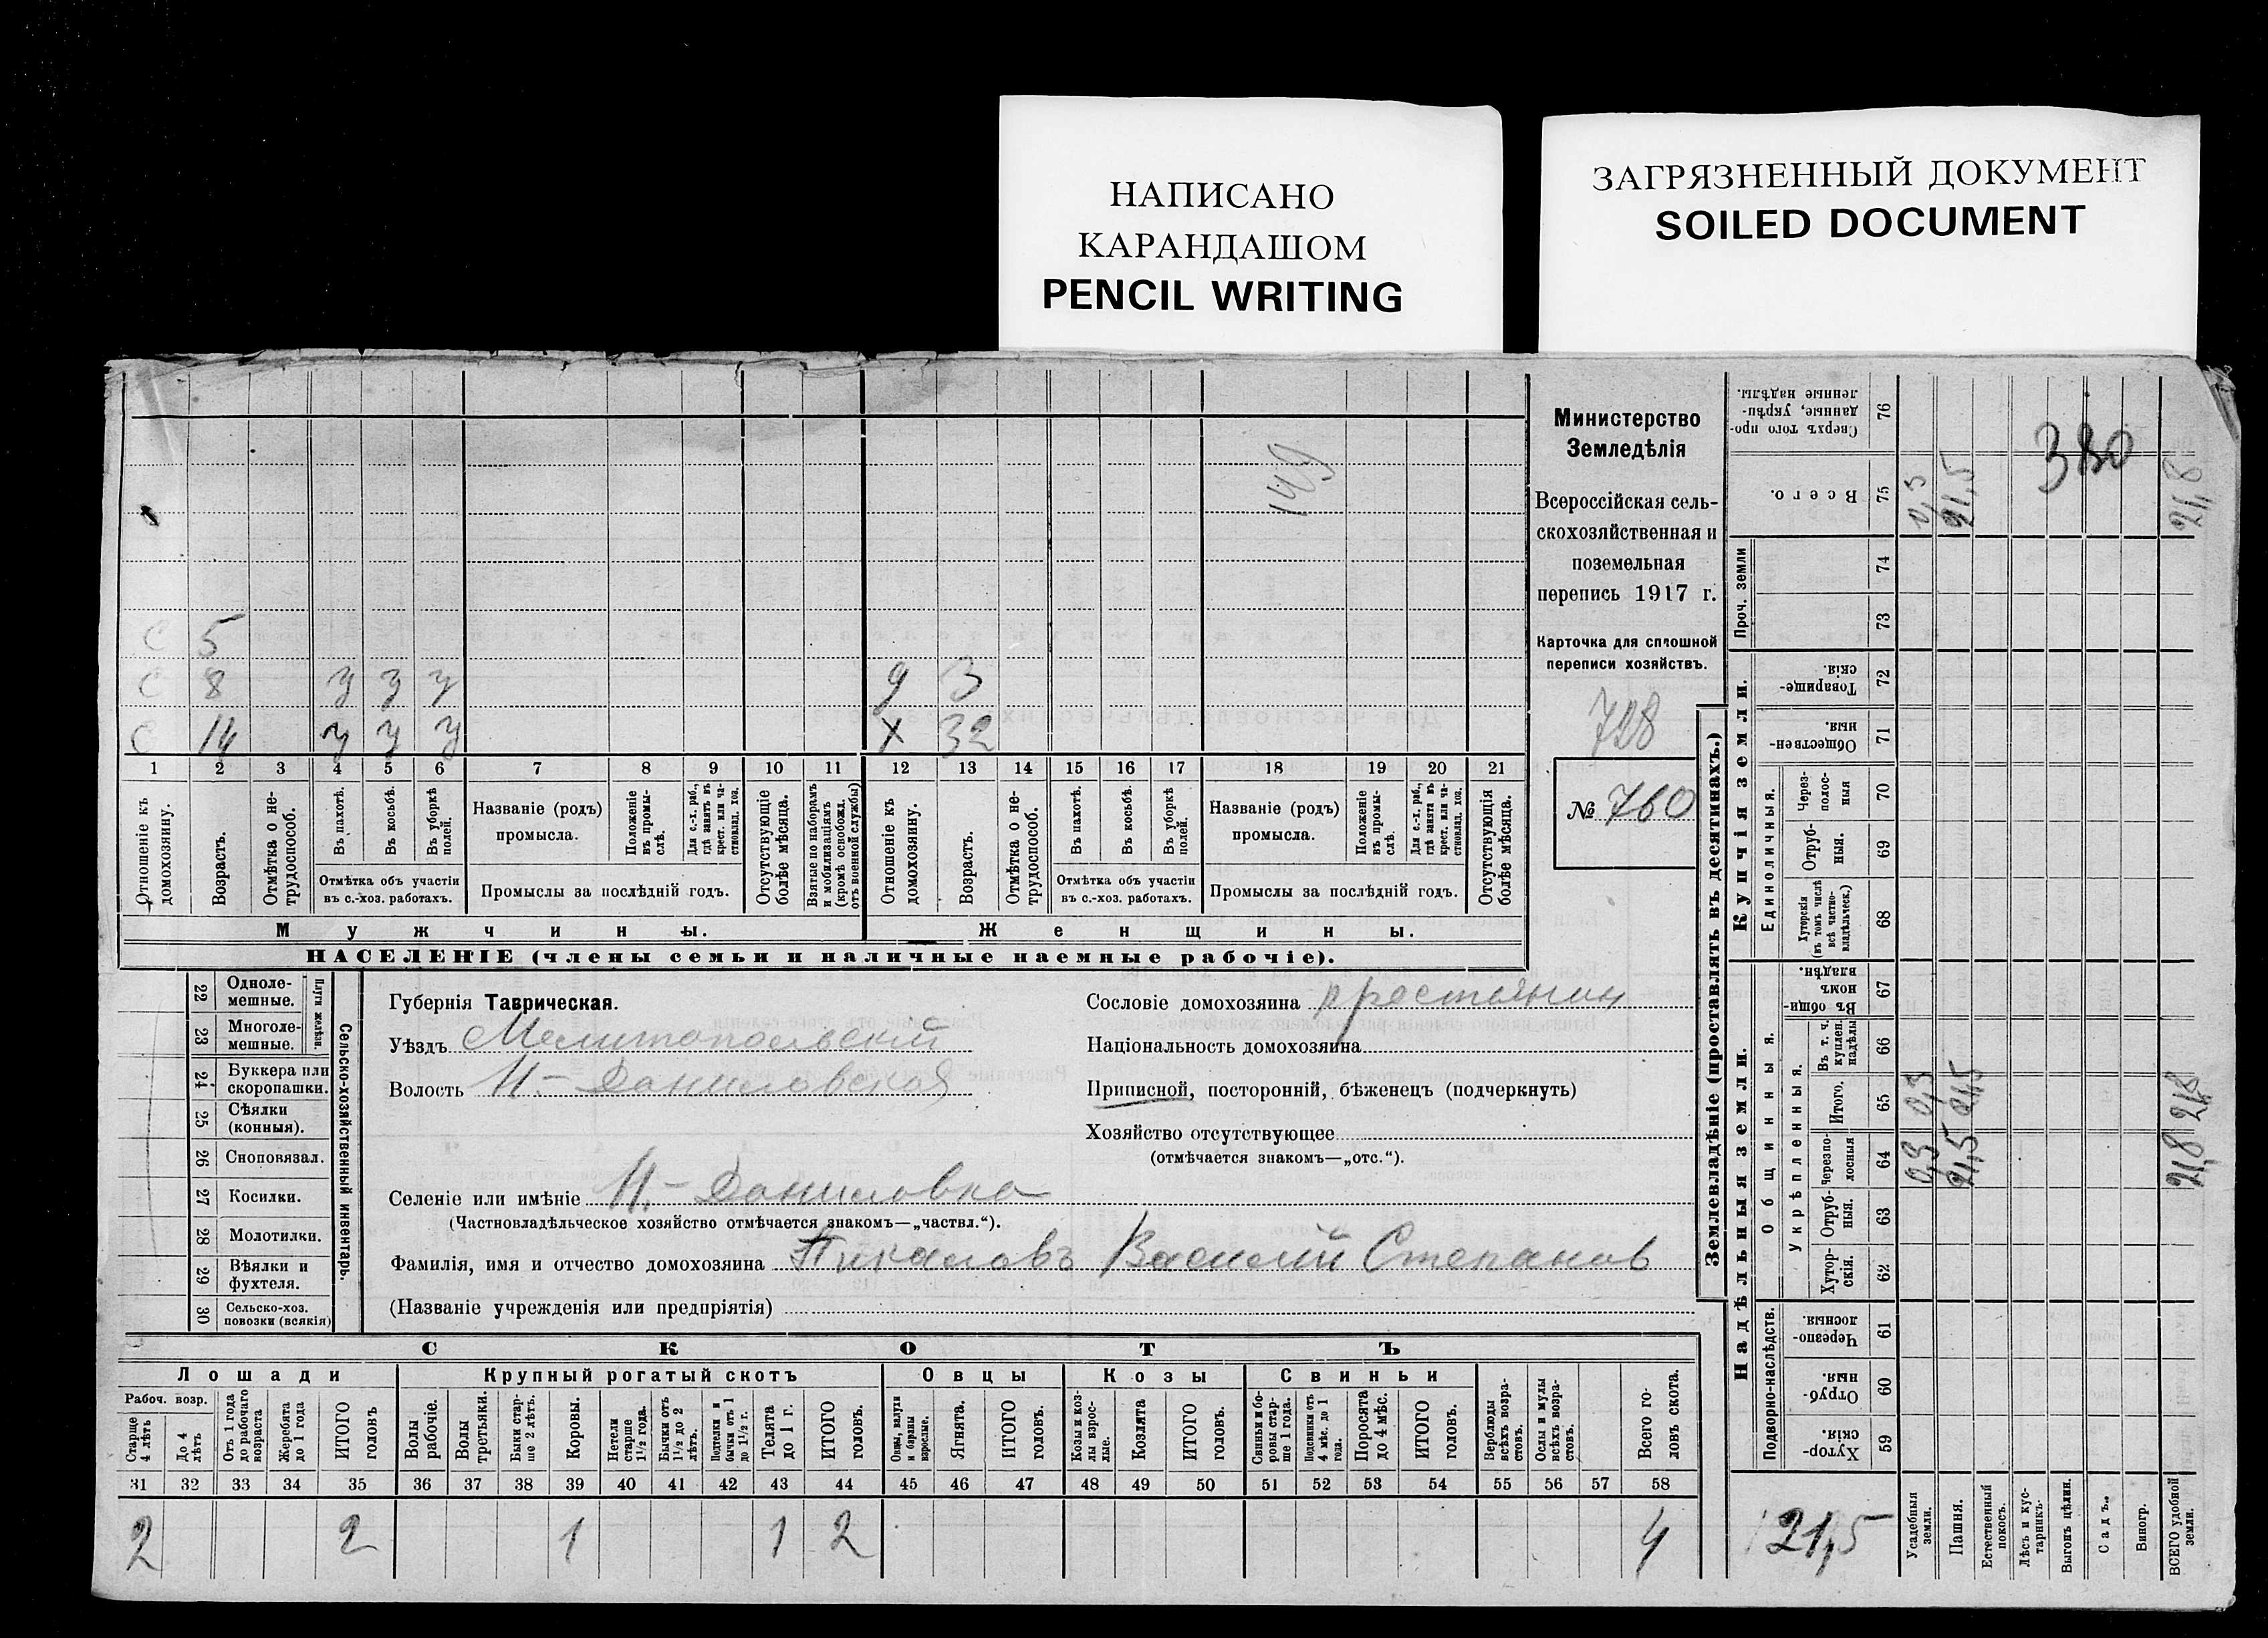 НАПИСАНО
КАРАНДАШОМ
PENCIL WRITING
ЗАГРЯЗНЕННЫЙ ДОКУМЕНТ
SOILED DOCUMENT
149
С 5
С 8 у у у 9 3
С 14 у у у х 32
1 2 3 4 5 6 7 8 9 10 11 12 13 14 15 16 17 18 19 20 21
Отношеніе къ домохозяину.
Возрастъ.
Отмѣтка о не-трудоспособ.
Въ пахотѣ.
Въ косьбѣ.
Въ уборкѣ полей.
Отмѣтка объ участіи въ с.-хоз. работахъ.
Названіе (родъ) промысла.
Положеніе въ промы-слѣ.
Для с.-х. раб., гдѣ занятъ въ крест. или ча-стновлад. хоз.
Промыслы за послѣдній годъ.
Отсутствующіе болѣе мѣсяца.
Взятые по наборамъ и мобилизаціямъ (кромѣ освобожд. отъ военной службы)
Отношеніе къ домохозяину.
Возрастъ.
Отмѣтка о не-трудоспособ.
Въ пахотѣ.
Въ косьбѣ.
Въ уборкѣ полей.
Отмѣтка объ участіи въ с.-хоз. работахъ.
Названіе (родъ) промысла.
Положеніе въ промы-слѣ.
Для с.-х. раб., гдѣ занята въ крест. или ча-стновлад. хоз.
Промыслы за послѣдній годъ.
Отсутствующія болѣе мѣсяца.
Мужчины.
Женщины.
НАСЕЛЕНІЕ (члены семьи и наличные наемные рабочіе).
Министерство
Земледѣлія
Всероссійская сель-
скохозяйственная и
поземельная
перепись 1917 г.
Карточка для сплошной
переписи хозяйствъ.
728
№ 760
22 Одноле-мешные.
23 Многоле-мешные.
Плуги желѣзн.
24 Буккера или скоропашки.
25 Сѣялки (конныя).
26 Сноповязал.
27 Косилки.
28 Молотилки.
29 Вѣялки и фухтеля.
30 Сельско-хоз. повозки (всякія)
Сельско-хозяйственный инвентарь.
Губернія Таврическая.
Уѣздъ Мелитопольскій
Волость Н-Даниловская
Селеніе или имѣніе Н.-Даниловка
(Частновладѣльческое хозяйство отмѣчается знакомъ—„частвл.“).
Фамилія, имя и отчество домохозяина Пикаловъ Василій Степанов
(Названіе учрежденія или предпріятія)
Сословіе домохозяина крестьянин
Національность домохозяина
Приписной, посторонній, бѣженецъ (подчеркнуть)
Хозяйство отсутствующее
(отмѣчается знакомъ—„отс.“).
СКОТЪ
Лошади
Крупный рогатый скотъ
Овцы
Козы
Свиньи
Рабоч. возр.
Старще 4 лѣтъ
До 4 лѣтъ
Отъ 1 года до рабочаго возраста
Жеребята до 1 года
ИТОГО головъ
Волы рабочіе.
Волы третьяки.
Быки стар-ше 2 лѣтъ.
Коровы.
Нетели старше 1½ года.
Бычки отъ 1½ до 2 лѣтъ.
Подтелки и бычки отъ 1 до 1½ г.
Телята до 1 г.
ИТОГО головъ.
Овцы, валухи и бараны взрослые.
Ягнята.
ИТОГО головъ.
Козы и коз-лы взрос-лые.
Козлята
ИТОГО головъ.
Свиньи и бо-ровы стар-ше 1 года.
Подсвинки отъ 4 мѣс. до 1 года.
Поросята до 4 мѣс.
ИТОГО головъ.
Верблюды всѣхъ возра-стовъ.
Ослы и мулы всѣхъ возра-стовъ.
Всего го-ловъ скота.
31 32 33 34 35 36 37 38 39 40 41 42 43 44 45 46 47 48 49 50 51 52 53 54 55 56 57 58
2 2 1 1 2 4
Землевладѣніе (проставлять въ десятинахъ.)
Купчія земли.
Надѣльныя земли.
Сверхъ того про-данные, укрѣп-ленные надѣлы. 76
Всего. 75 0,3 21,5 21,8
380
Проч. земли
74
73
Товарище-скія. 72
Обществен-ныя. 71
Единоличныя.
Через-полос-ныя 70
Отруб-ныя. 69
Хуторскія (въ томъ числѣ всѣ частно-владѣльческ.) 68
Общинныя.
Въ общи-номъ владѣн. 67
Укрѣпленныя.
Въ т. ч. куплен. надѣлы 66
Итого. 65 0,3 21,5 21,8
Черезпо-лосныя 64 0,3 21,5 21,8
Отруб-ныя. 63
Хутор-скія. 62
Подворно-наслѣдств.
Черезпо-лосныя. 61
Отруб-ныя. 60
Хутор-скія. 59
21,5
Усадебныя земли.
Пашня.
Естественный покосъ.
Лѣсъ и кус-тарникъ.
Выгонъ цѣлин.
Садъ.
Виногр.
ВСЕГО удобной земли.